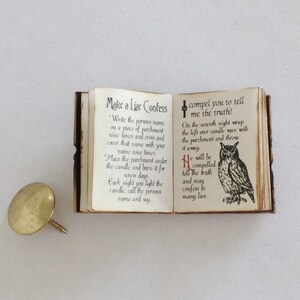 Make a Liar Confess
"Write the persons name
on a piece of parchment
nine times and cross and
cover that name with your
name nine times.
Place the parchment under
the candle and burn it for
seven days.
Each night you light the
candle, call the persons
name and say...
I compel you to tell
me the truth!
On the seventh night wrap
the left over candle wax with
the parchment and throw
it away.
He will be
compelled
tell the truth
and may
confess to
many lies.